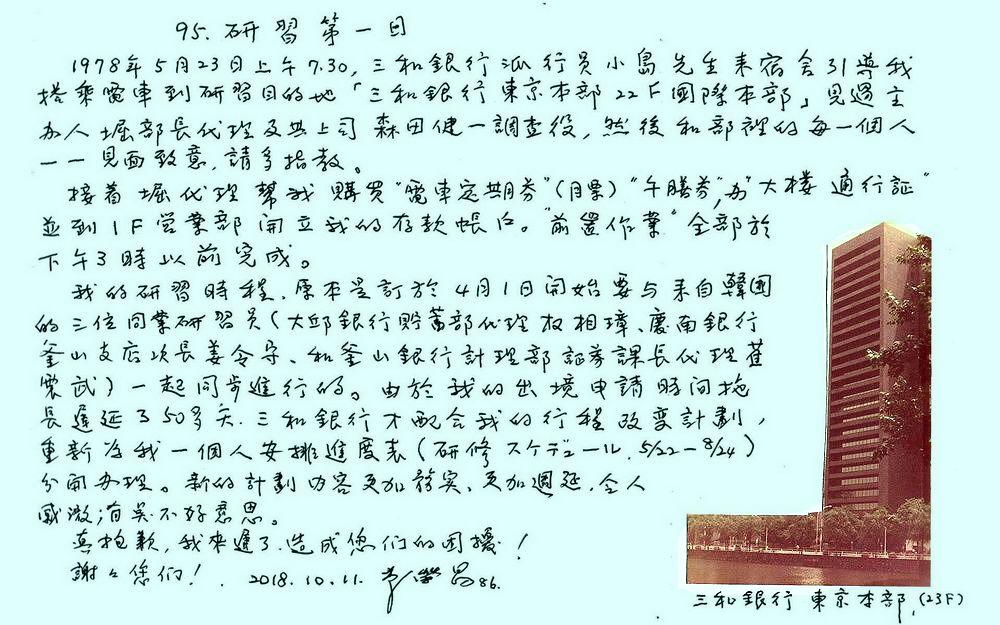 95. 研習第一日
1978年5月23日上午7.30,三和銀行派行員小島先生来宿舍引導我
搭乘電車到研習目的地「三和銀行東京本部22F國際本部」見過主
办人堀部長代理及其上司森田健一調查役,然後和部裡的每一個人
一一見面致意,請多指教。
接著堀代理幫我購買"電車定期券"(月票)"午膳券",办"大樓通行証"
並到1F営業部開立我的存款帳户。"前置作業"全部於
下午3時以前完成。
我的研習時程,原本是訂於4月1日開始要与来自韓国
的三位同業研習員(大邱銀行貯蓄部代理 相璋、慶南銀行
釜山支店次長姜令守、和釜山銀行計理部証券課長代理崔
震武)一起同步進行的。由於我的出境申請時间拖
長遲延了50多天.三和銀行才配合我的行程改变計劃,
重新為我一個人安排進度表(研修スケデュール.5/22-8/24)
分開办理。新的計劃内容更加務实、更加週延,令人
感激;有夠不好意思。
真抱歉,我來遲了.造成您們的困擾!
謝々您們! 2018.10.11. 86.
三和銀行 東京本部.(23F)